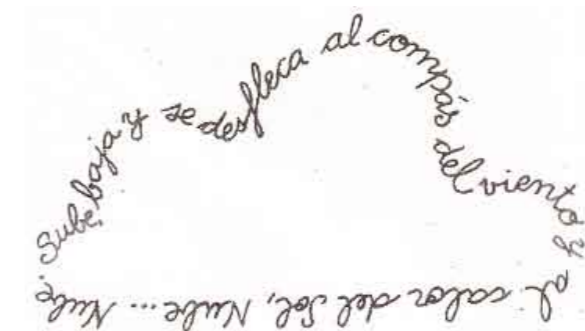 Sube, baja y se desfleca al compás del viento y
al calor del Sol, Nube... Nube.